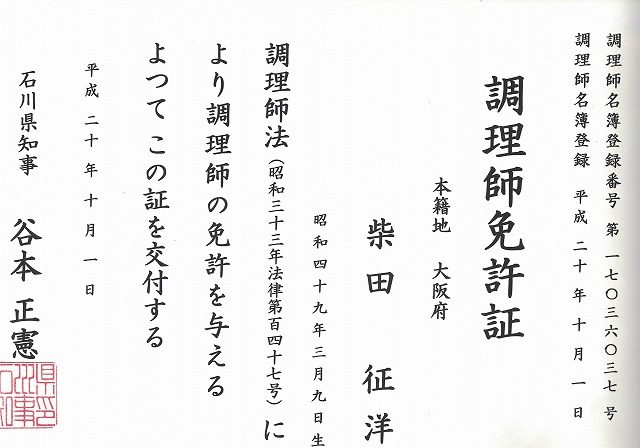 調理師名簿登録番号 第 一七〇三六〇三七 号
調理師名簿登録 平成 二十 年 十 月 一 日
調理師免許証
本籍地 大阪府
柴田 征洋
昭和四十九年三月九日生
調理師法(昭和三十三年法律第百四十七号)に
より調理師の免許を与える
よつてこの証を交付する
平成 二十 年 十 月 一 日
石川県知事 谷本 正憲